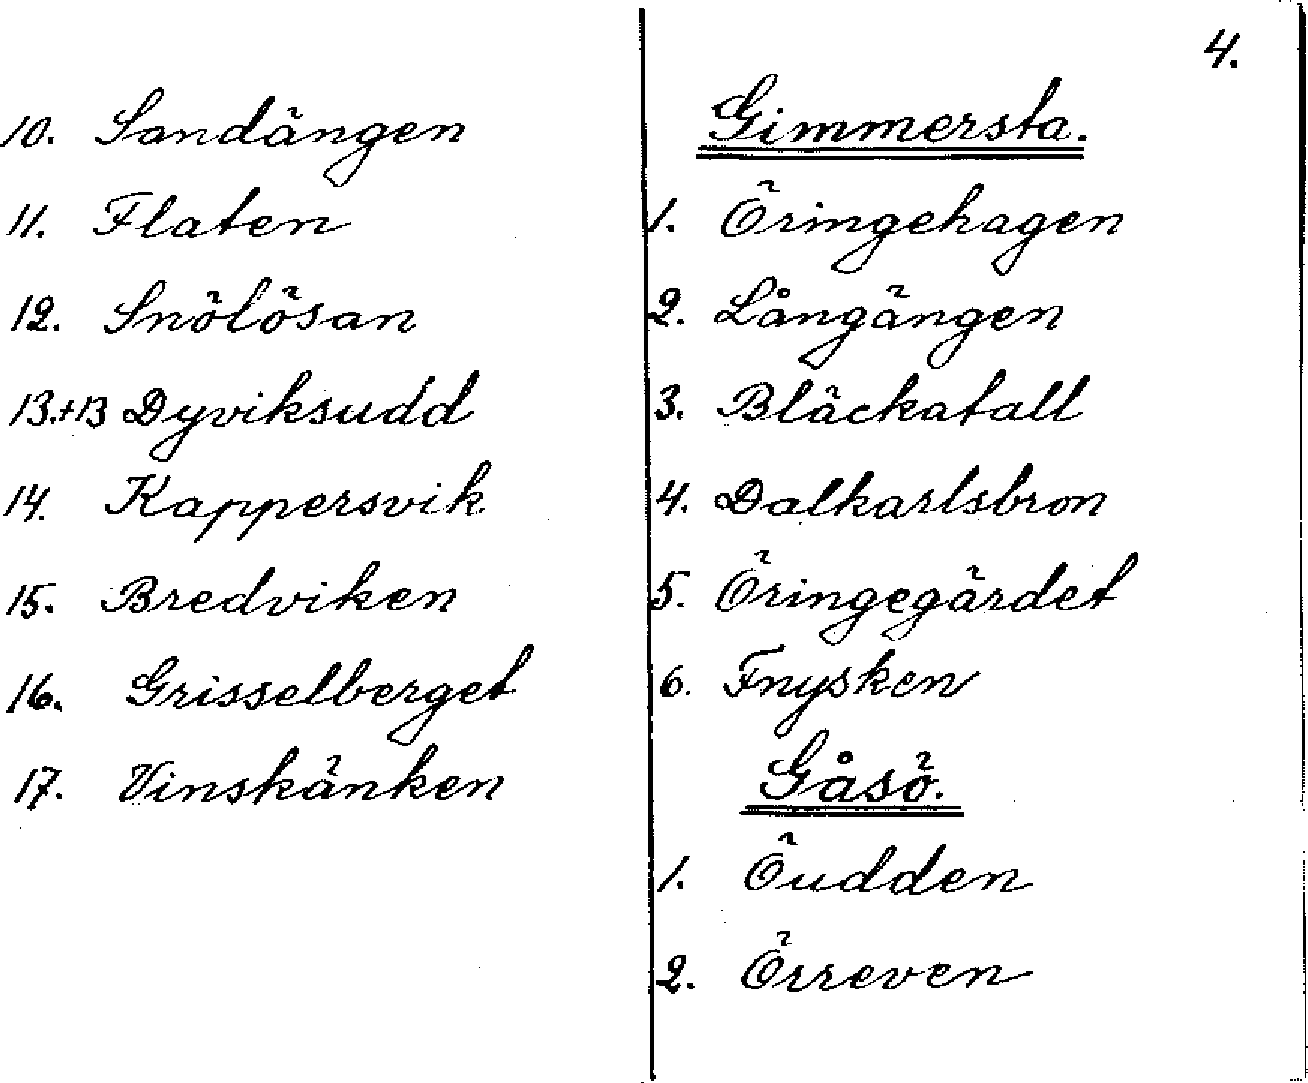 10. Sandängen
11. Flaten
12. Snölösan
13.+13 Dyviksudd
14. Kappersvik
15. Bredviken
16. Grisselberget
17. Vinskänken
4.
Gimmersta.
1. Öringehagen
2. Långängen
3. Bläckatall
4. Dalkarlsbron
5. Öringegärdet
6. Fnysken
Gåsö.
1. Öudden
2. Örreven